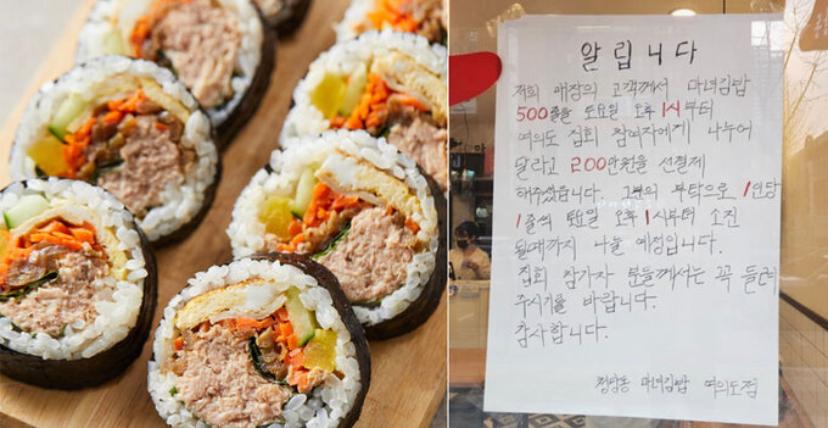 알립니다
저희 매장의 고객께서 마녀김밥
500줄을 토요일 오후 1시부터
여의도 집회 참여자에게 나누어
달라고 200만원을 선결제
해주셨습니다. 그분의 부탁으로 1인당
1줄씩 토요일 오후 1시부터 소진
될때까지 나눌 예정입니다.
집회 참가자 분들께서는 꼭 들려
주시기를 바랍니다.
감사합니다.
청담동 마녀김밥 여의도점